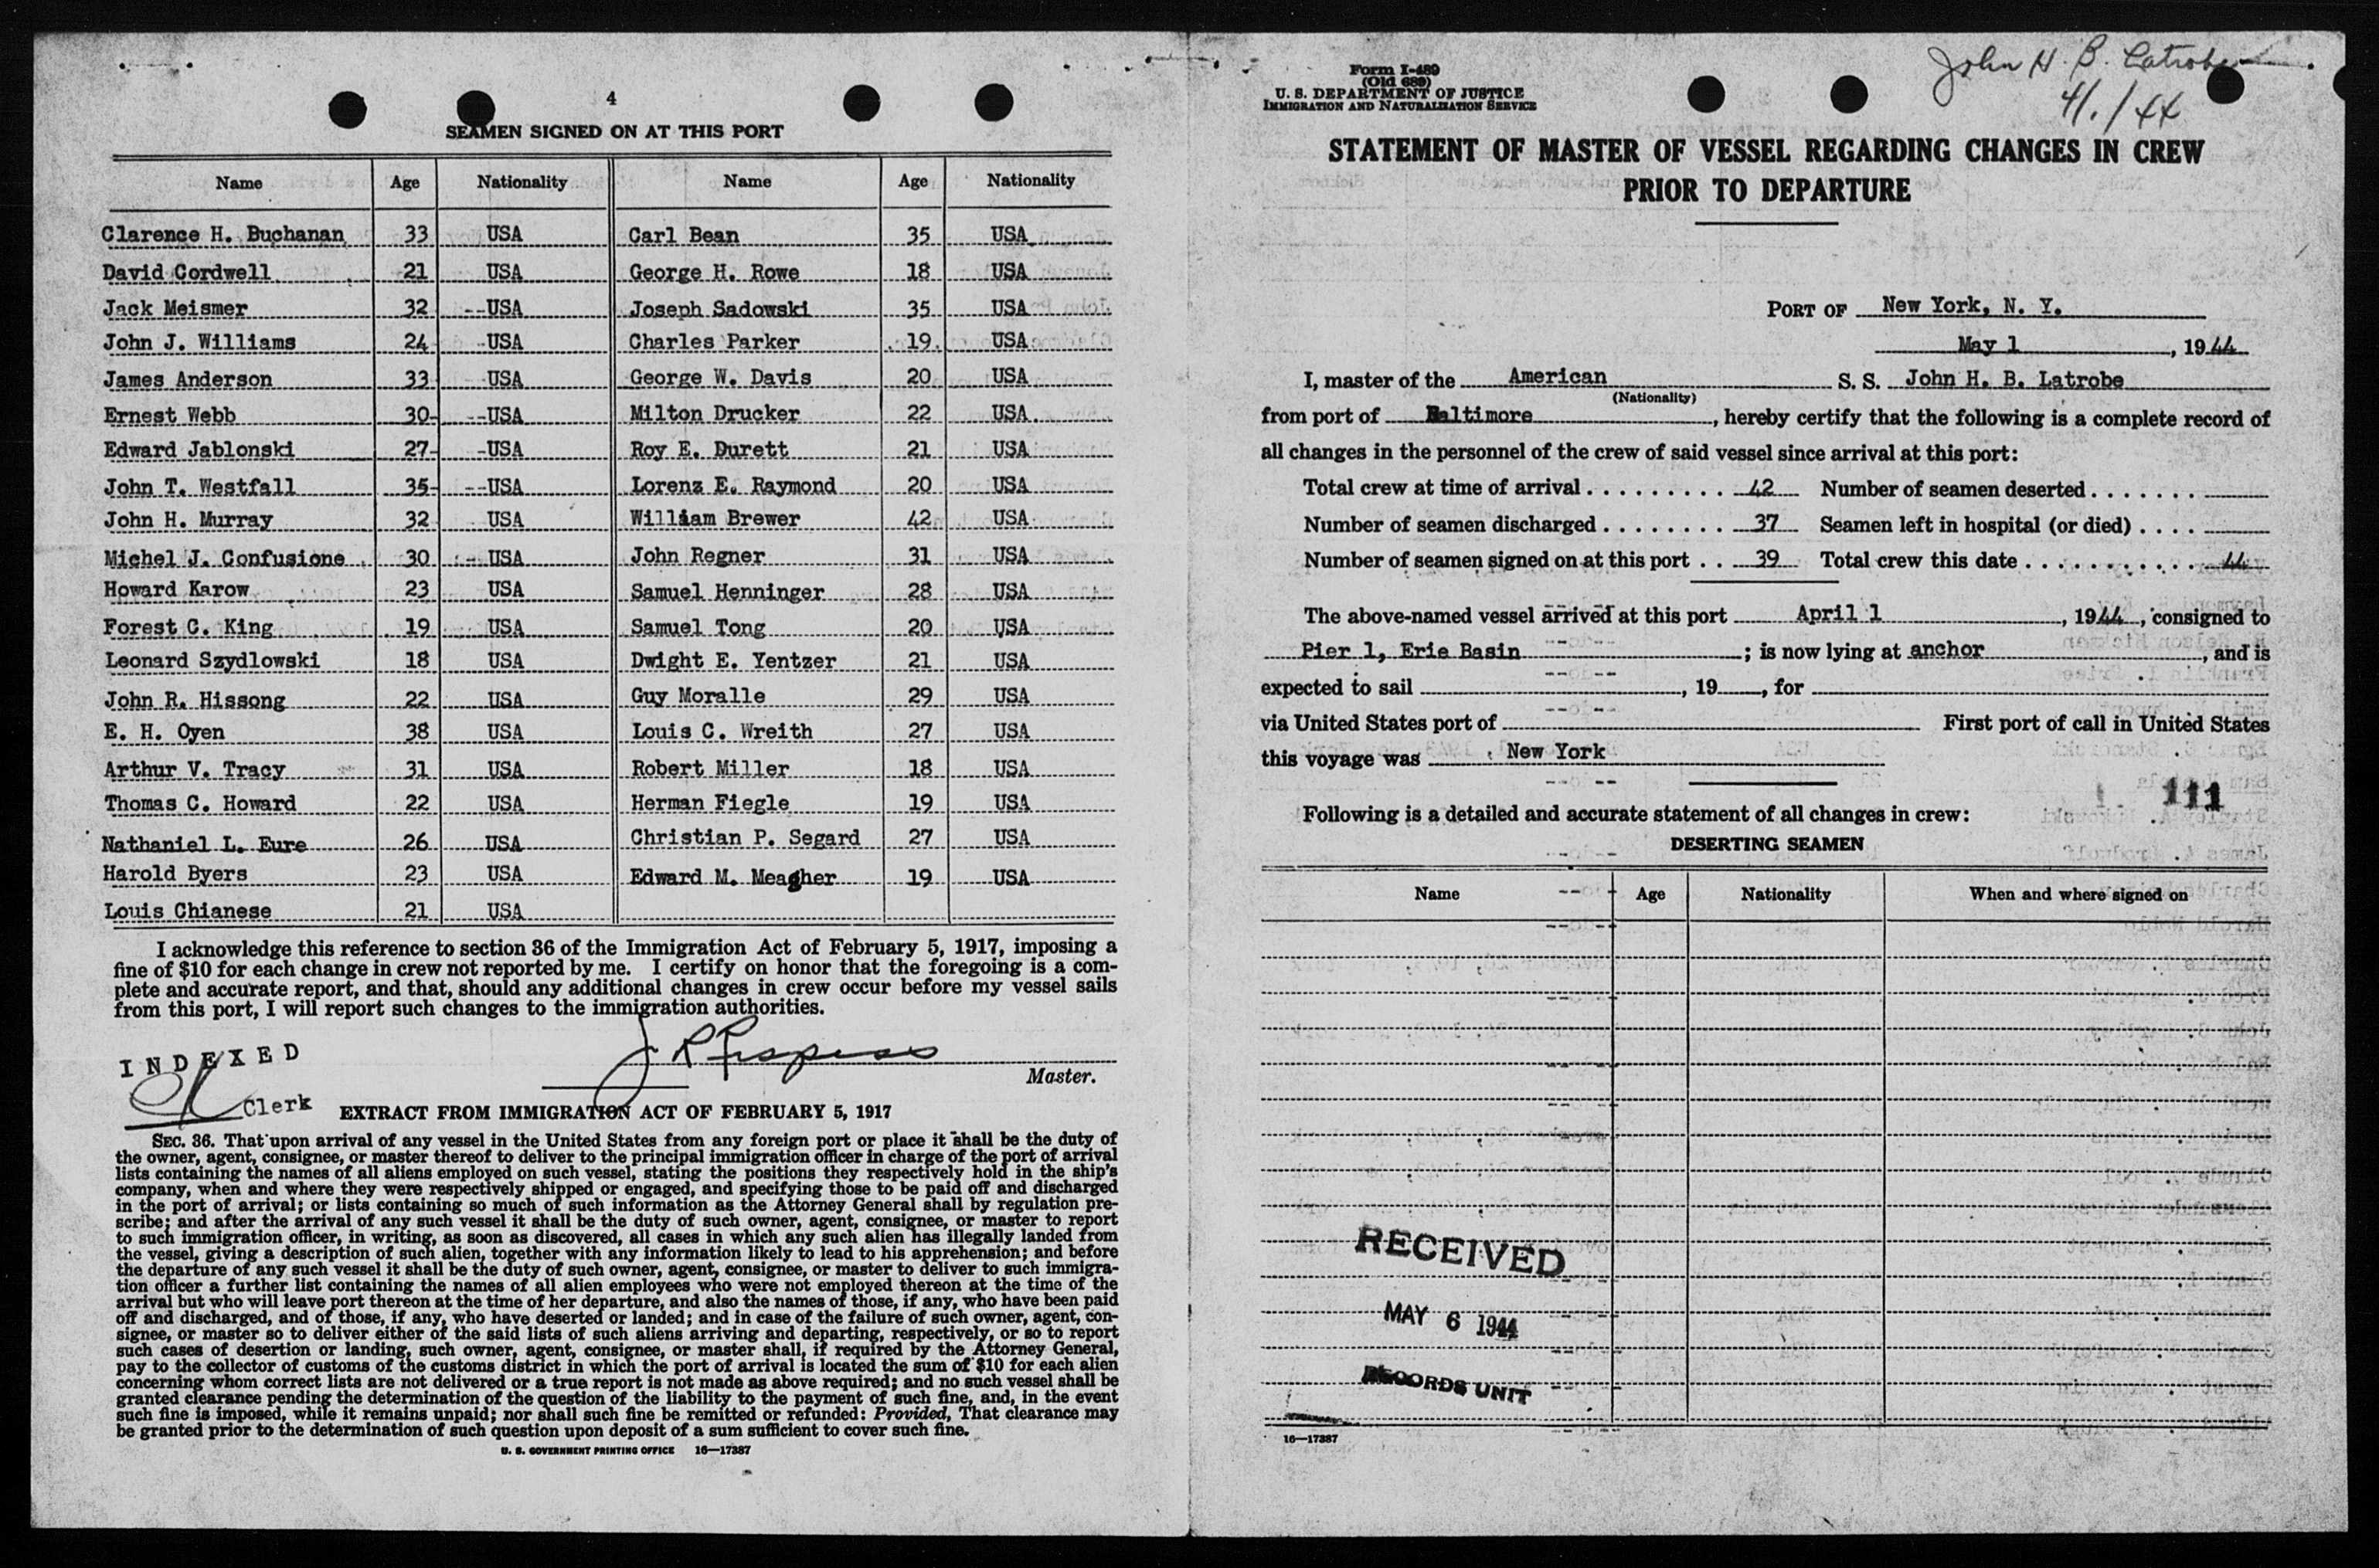 4
SEAMEN SIGNED ON AT THIS PORT
Name Age Nationality Name Age Nationality
Clarence H. Buchanan 33 USA Carl Bean 35 USA
David Cordwell 21 USA George H. Rowe 18 USA
Jack Meismer 32 USA Joseph Sadowski 35 USA
John J. Williams 24 USA Charles Parker 19 USA
James Anderson 33 USA George W. Davis 20 USA
Ernest Webb 30 USA Milton Drucker 22 USA
Edward Jablonski 27 USA Roy E. Durett 21 USA
John T. Westfall 35 USA Lorenz E. Raymond 20 USA
John H. Murray 32 USA William Brewer 42 USA
Michel J. Confusione 30 USA John Regner 31 USA
Howard Karow 23 USA Samuel Henninger 28 USA
Forest C. King 19 USA Samuel Tong 20 USA
Leonard Szydlowski 18 USA Dwight E. Yentzer 21 USA
John R. Hissong 22 USA Guy Moralle 29 USA
E. H. Oyen 38 USA Louis C. Wreith 27 USA
Arthur V. Tracy 31 USA Robert Miller 18 USA
Thomas C. Howard 22 USA Herman Fiegle 19 USA
Nathaniel L. Eure 26 USA Christian P. Segard 27 USA
Harold Byers 23 USA Edward M. Meagher 19 USA
Louis Chianese 21 USA
I acknowledge this reference to section 36 of the Immigration Act of February 5, 1917, imposing a
fine of $10 for each change in crew not reported by me. I certify on honor that the foregoing is a com-
plete and accurate report, and that, should any additional changes in crew occur before my vessel sails
from this port, I will report such changes to the immigration authorities.
INDEXED
Master.
Clerk
EXTRACT FROM IMMIGRATION ACT OF FEBRUARY 5, 1917
SEC. 36. That upon arrival of any vessel in the United States from any foreign port or place it shall be the duty of
the owner, agent, consignee, or master thereof to deliver to the principal immigration officer in charge of the port of arrival
lists containing the names of all aliens employed on such vessel, stating the positions they respectively hold in the ship's
company, when and where they were respectively shipped or engaged, and specifying those to be paid off and discharged
in the port of arrival; or lists containing so much of such information as the Attorney General shall by regulation pre-
scribe; and after the arrival of any such vessel it shall be the duty of such owner, agent, consignee, or master to report
to such immigration officer, in writing, as soon as discovered, all cases in which any such alien has illegally landed from
the vessel, giving a description of such alien, together with any information likely to lead to his apprehension; and before
the departure of any such vessel it shall be the duty of such owner, agent, consignee, or master to deliver to such immigra-
tion officer a further list containing the names of all alien employees who were not employed thereon at the time of the
arrival but who will leave port thereon at the time of her departure, and also the names of those, if any, who have been paid
off and discharged, and of those, if any, who have deserted or landed; and in case of the failure of such owner, agent, con-
signee, or master so to deliver either of the said lists of such aliens arriving and departing, respectively, or so to report
such cases of desertion or landing, such owner, agent, consignee, or master shall, if required by the Attorney General,
pay to the collector of customs of the customs district in which the port of arrival is located the sum of $10 for each alien
concerning whom correct lists are not delivered or a true report is not made as above required; and no such vessel shall be
granted clearance pending the determination of the question of the liability to the payment of such fine, and, in the event
such fine is imposed, while it remains unpaid; nor shall such fine be remitted or refunded: Provided, That clearance may
be granted prior to the determination of such question upon deposit of a sum sufficient to cover such fine.
U. S. GOVERNMENT PRINTING OFFICE 16—17387
Form I-489
(Old 689)
U. S. DEPARTMENT OF JUSTICE
IMMIGRATION AND NATURALIZATION SERVICE
John H. B. Latrobe
4/1/44
STATEMENT OF MASTER OF VESSEL REGARDING CHANGES IN CREW
PRIOR TO DEPARTURE
PORT OF New York, N. Y.
May 1, 1944
I, master of the American S. S. John H. B. Latrobe
(Nationality)
from port of Baltimore, hereby certify that the following is a complete record of
all changes in the personnel of the crew of said vessel since arrival at this port:
Total crew at time of arrival . . . . . . . . . 42 Number of seamen deserted . . . . . . .
Number of seamen discharged . . . . . . . . 37 Seamen left in hospital (or died) . . . .
Number of seamen signed on at this port . . 39 Total crew this date . . . . . . . . . . . 44
The above-named vessel arrived at this port April 1, 1944, consigned to
Pier 1, Erie Basin ; is now lying at anchor, and is
expected to sail , 19 , for
via United States port of First port of call in United States
this voyage was New York
111
Following is a detailed and accurate statement of all changes in crew:
DESERTING SEAMEN
Name Age Nationality When and where signed on
RECEIVED
MAY 6 1944
RECORDS UNIT
16—17387